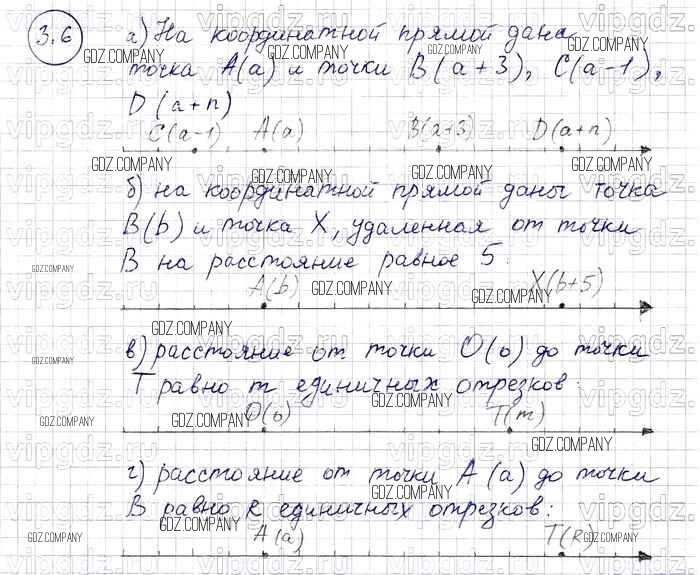 3.6 а) На координатной прямой дана
точка A(a) и точки B(a+3), C(a-1),
D(a+n)
C(a-1) A(a) B(a+3) D(a+n)
б) на координатной прямой даны точка
B(b) и точка X, удаленная от точки
B на расстояние равное 5.
A(b) X(b+5)
в) расстояние от точки O(o) до точки
T равно m единичных отрезков:
O(o) T(m)
г) расстояние от точки A(a) до точки
B равно R единичных отрезков:
A(a) T(R)
GDZ.COMPANY
vipgdz.ru